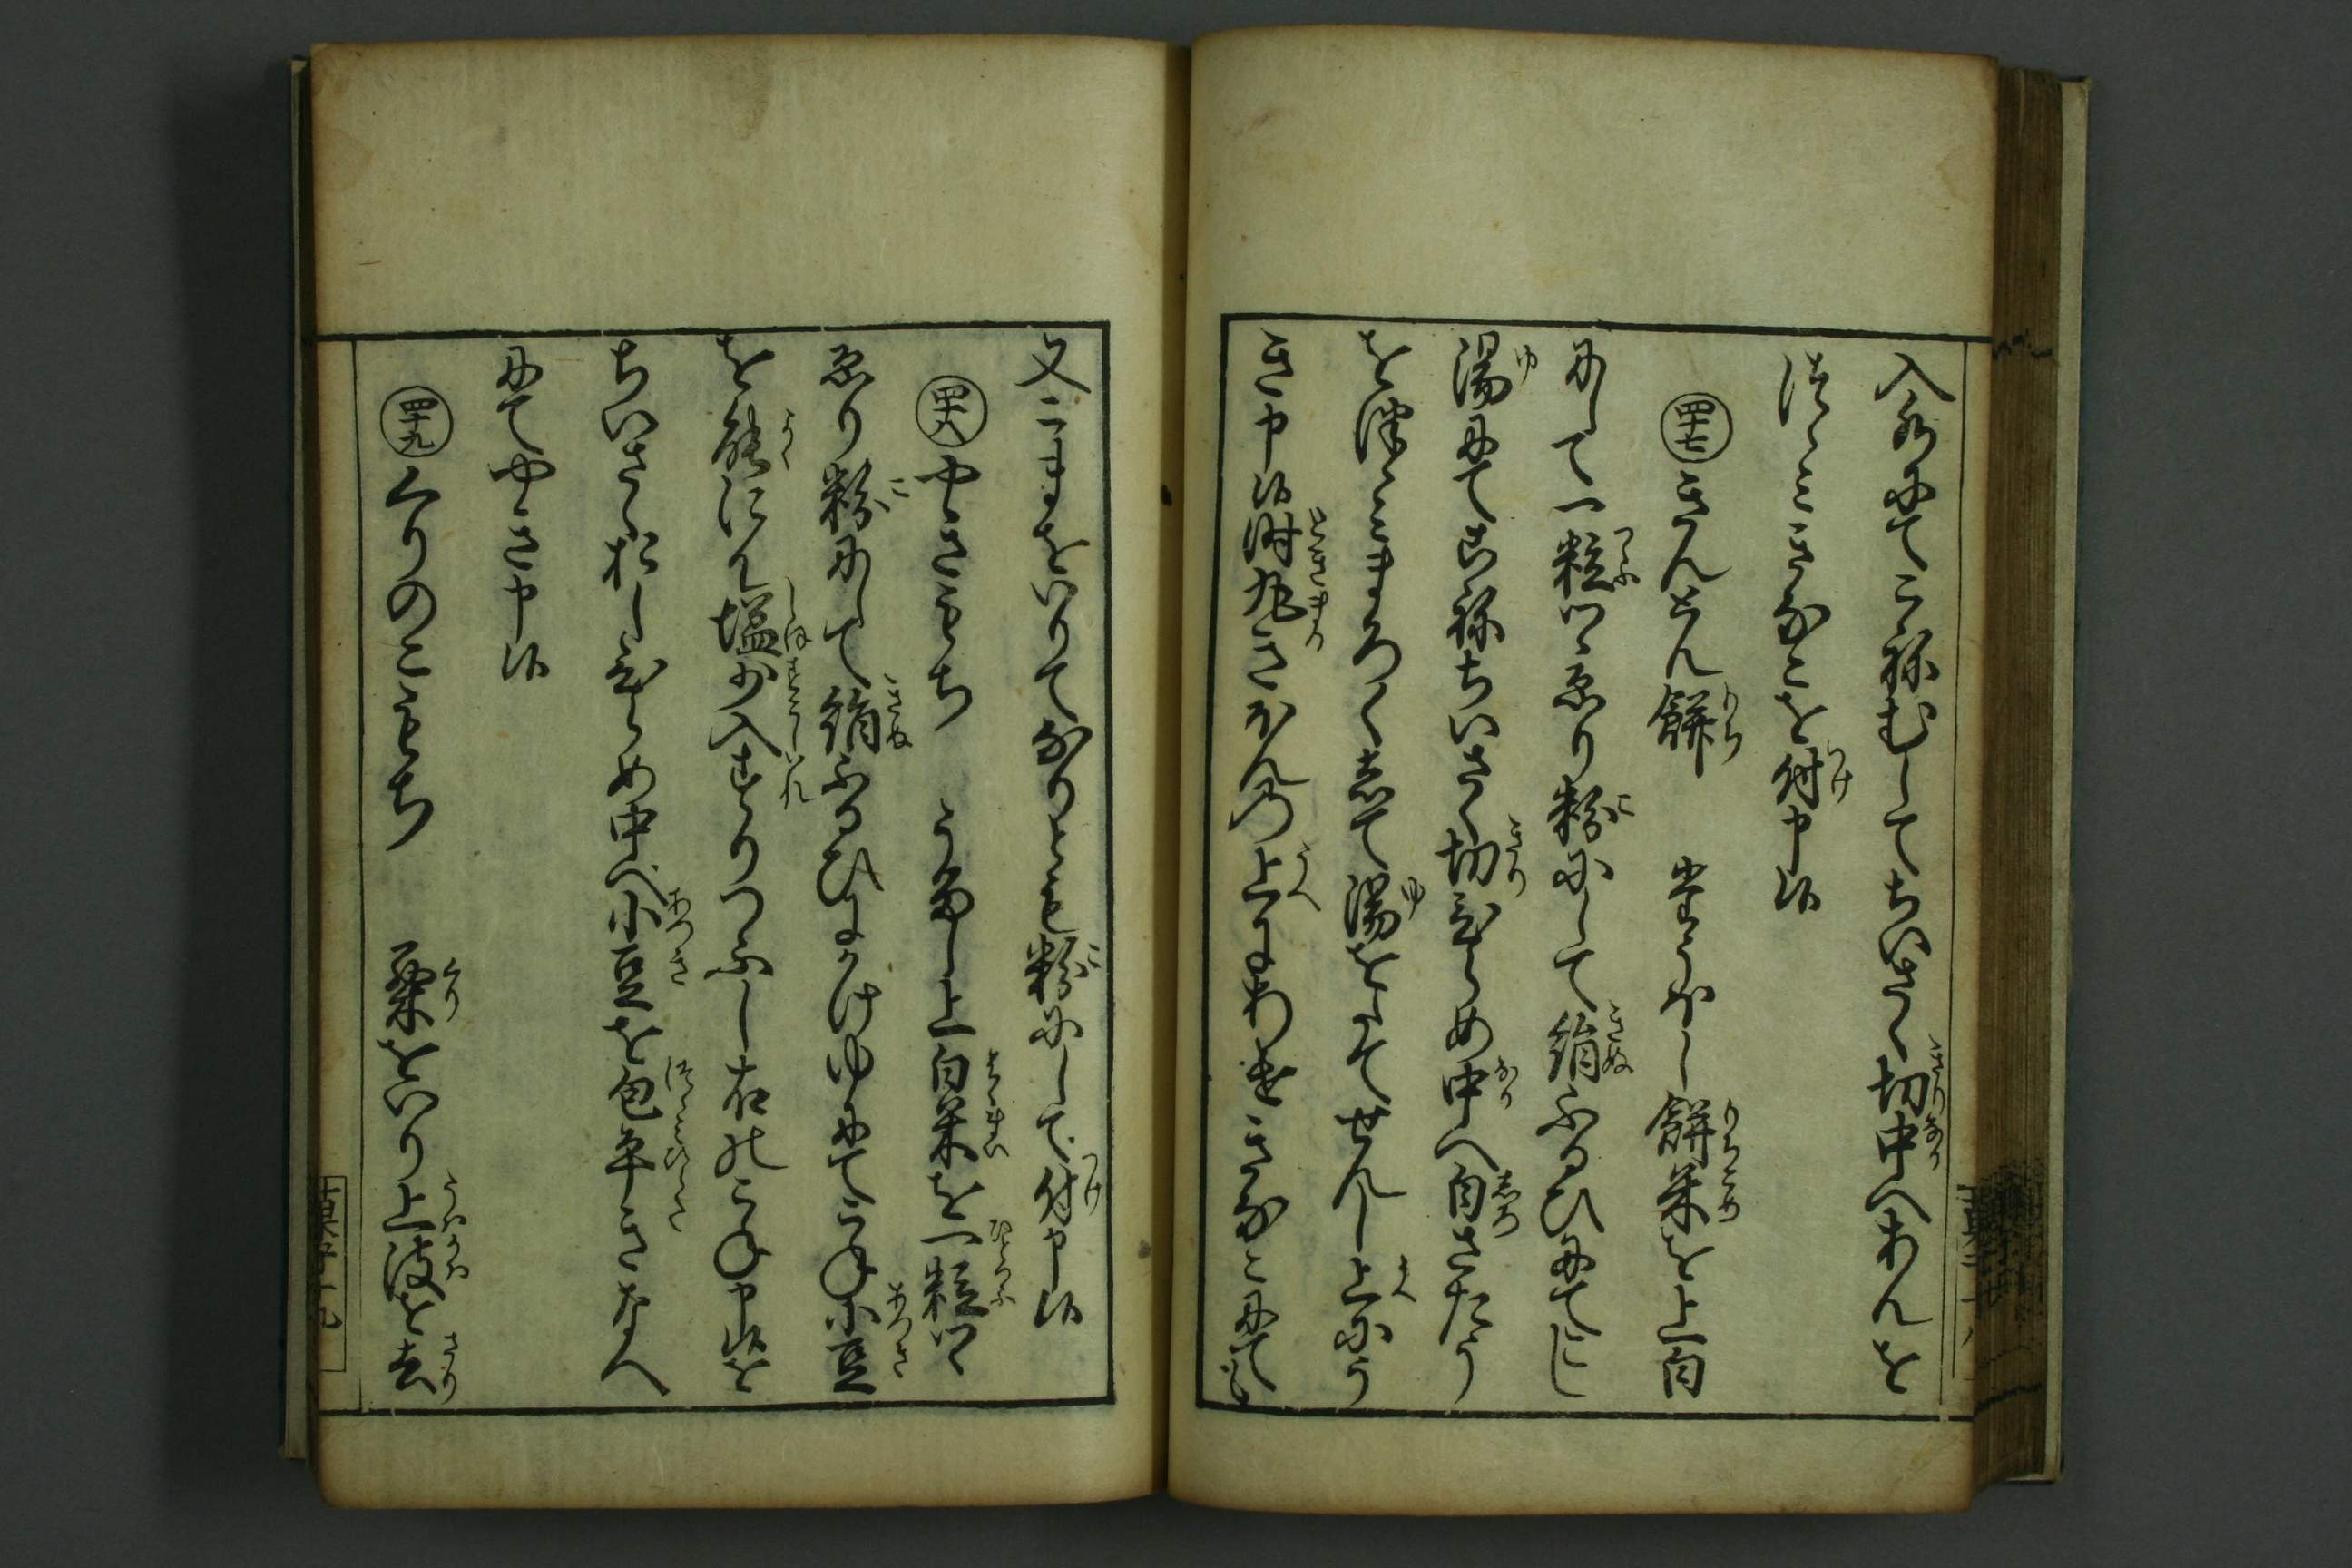 入水にてこねむしてちいさく切中へあんを
つゝみきなこを付申候
四十七 きんとん餅 たうほし餅米を上白
にして一粒つゝゑり粉にして絹ふるひにてにし
湯にてこねちいさく切ひらめ中へ白さたう
をつゝみまろくして湯をたてせんし上にう
き申候時丸きほんの上にわけきなこにても
又こまをいりてなりとも粉にして付申候
四十八 やきもち うるし上白米を一粒つゝ
ゑり粉にして絹ふるひにかけゆにてこね小豆
を能にて塩少入すりつふし右のこね申候を
ちいさくおしひらめ中へ小豆を包平きなへ
にてやき申候
四十九 くりのこもち 栗をいり上皮を去
菓子十九